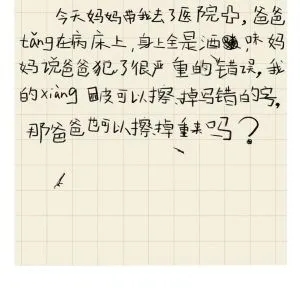 今天妈妈带我去了医院，爸爸
tǎng在病床上，身上全是酒味，妈
妈说爸爸犯了很严重的错误，我
的xiàng皮可以擦掉写错的字，
那爸爸也可以擦掉重来吗？